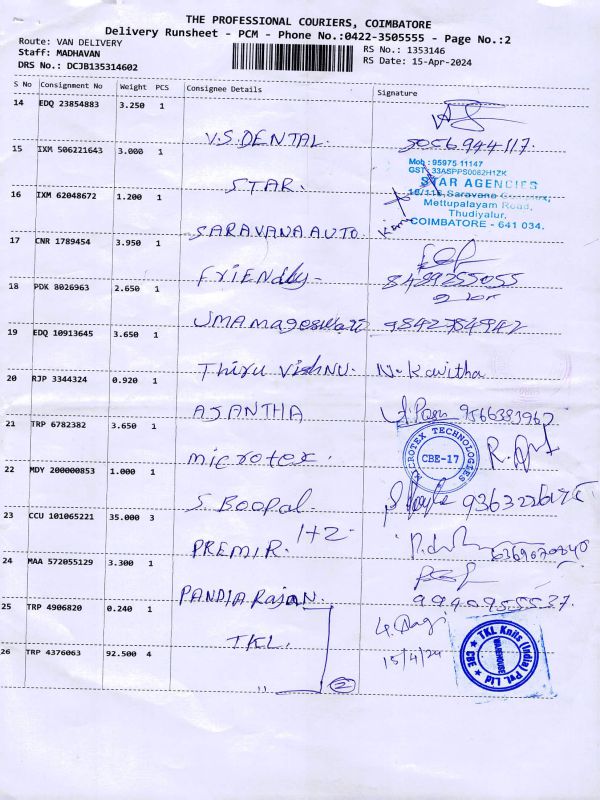 THE PROFESSIONAL COURIERS, COIMBATORE
Delivery Runsheet - PCM - Phone No.:0422-3505555 - Page No.:2
Route: VAN DELIVERY
RS No.: 1353146
Staff: MADHAVAN
RS Date: 15-Apr-2024
DRS No.: DCJB135314602
S No Consignment No Weight PCS Consignee Details Signature
14 EDQ 23854883 3.250 1
V.S.DENTAL.
15 IXM 506221643 3.000 1
Mob : 95975 11147
GST : 33ASPPS0082H1ZK
STAR AGENCIES
STAR.
Mettupalayam Road,
Thudiyalur,
COIMBATORE - 641 034.
16 IXM 62048672 1.200 1
SARAVANA AUTO.
17 CNR 1789454 3.950 1
Friendly -
18 PDK 8026963 2.650 1
UMA mageswari
19 EDQ 10913645 3.650 1
Thiru Vishnu. N. Kavitha
20 RJP 3344324 0.920 1
ASANTHA
21 TRP 6782382 3.650 1
microtex.
MICROTEX TECHNOLOGIES
CBE-17
22 MDY 200000853 1.000 1
S. Boopal.
23 CCU 101065221 35.000 3
PREMIR. 1+2
24 MAA 572055129 3.300 1
PANDIA Rajan.
25 TRP 4906820 0.240 1
TKL.
15/4/24
TKL Knits (India) Pvt. Ltd
WAREHOUSE
CBE
26 TRP 4376063 92.500 4
,, 2